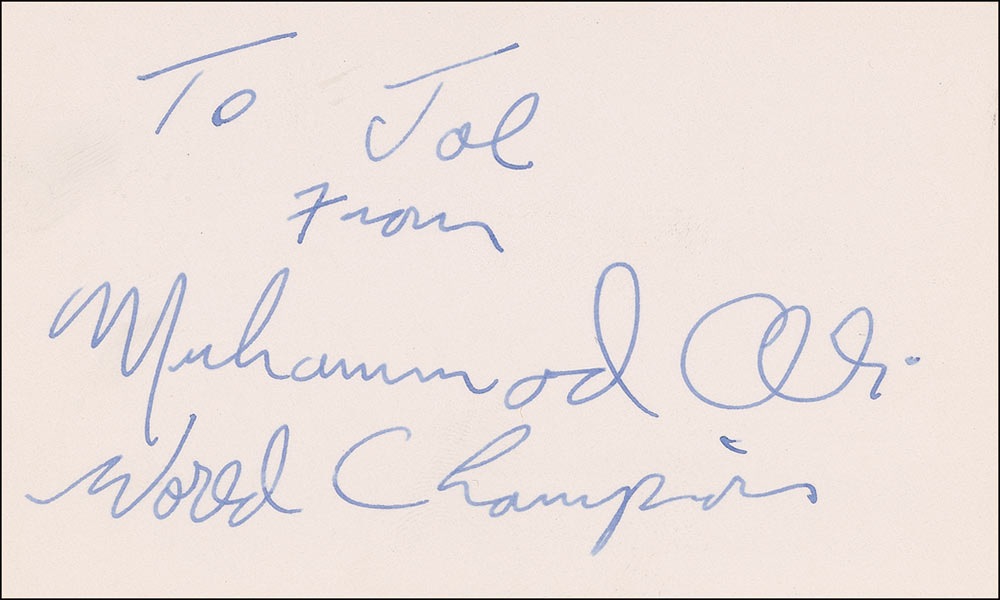 To Jol
From
Muhammad Ali
World Champion